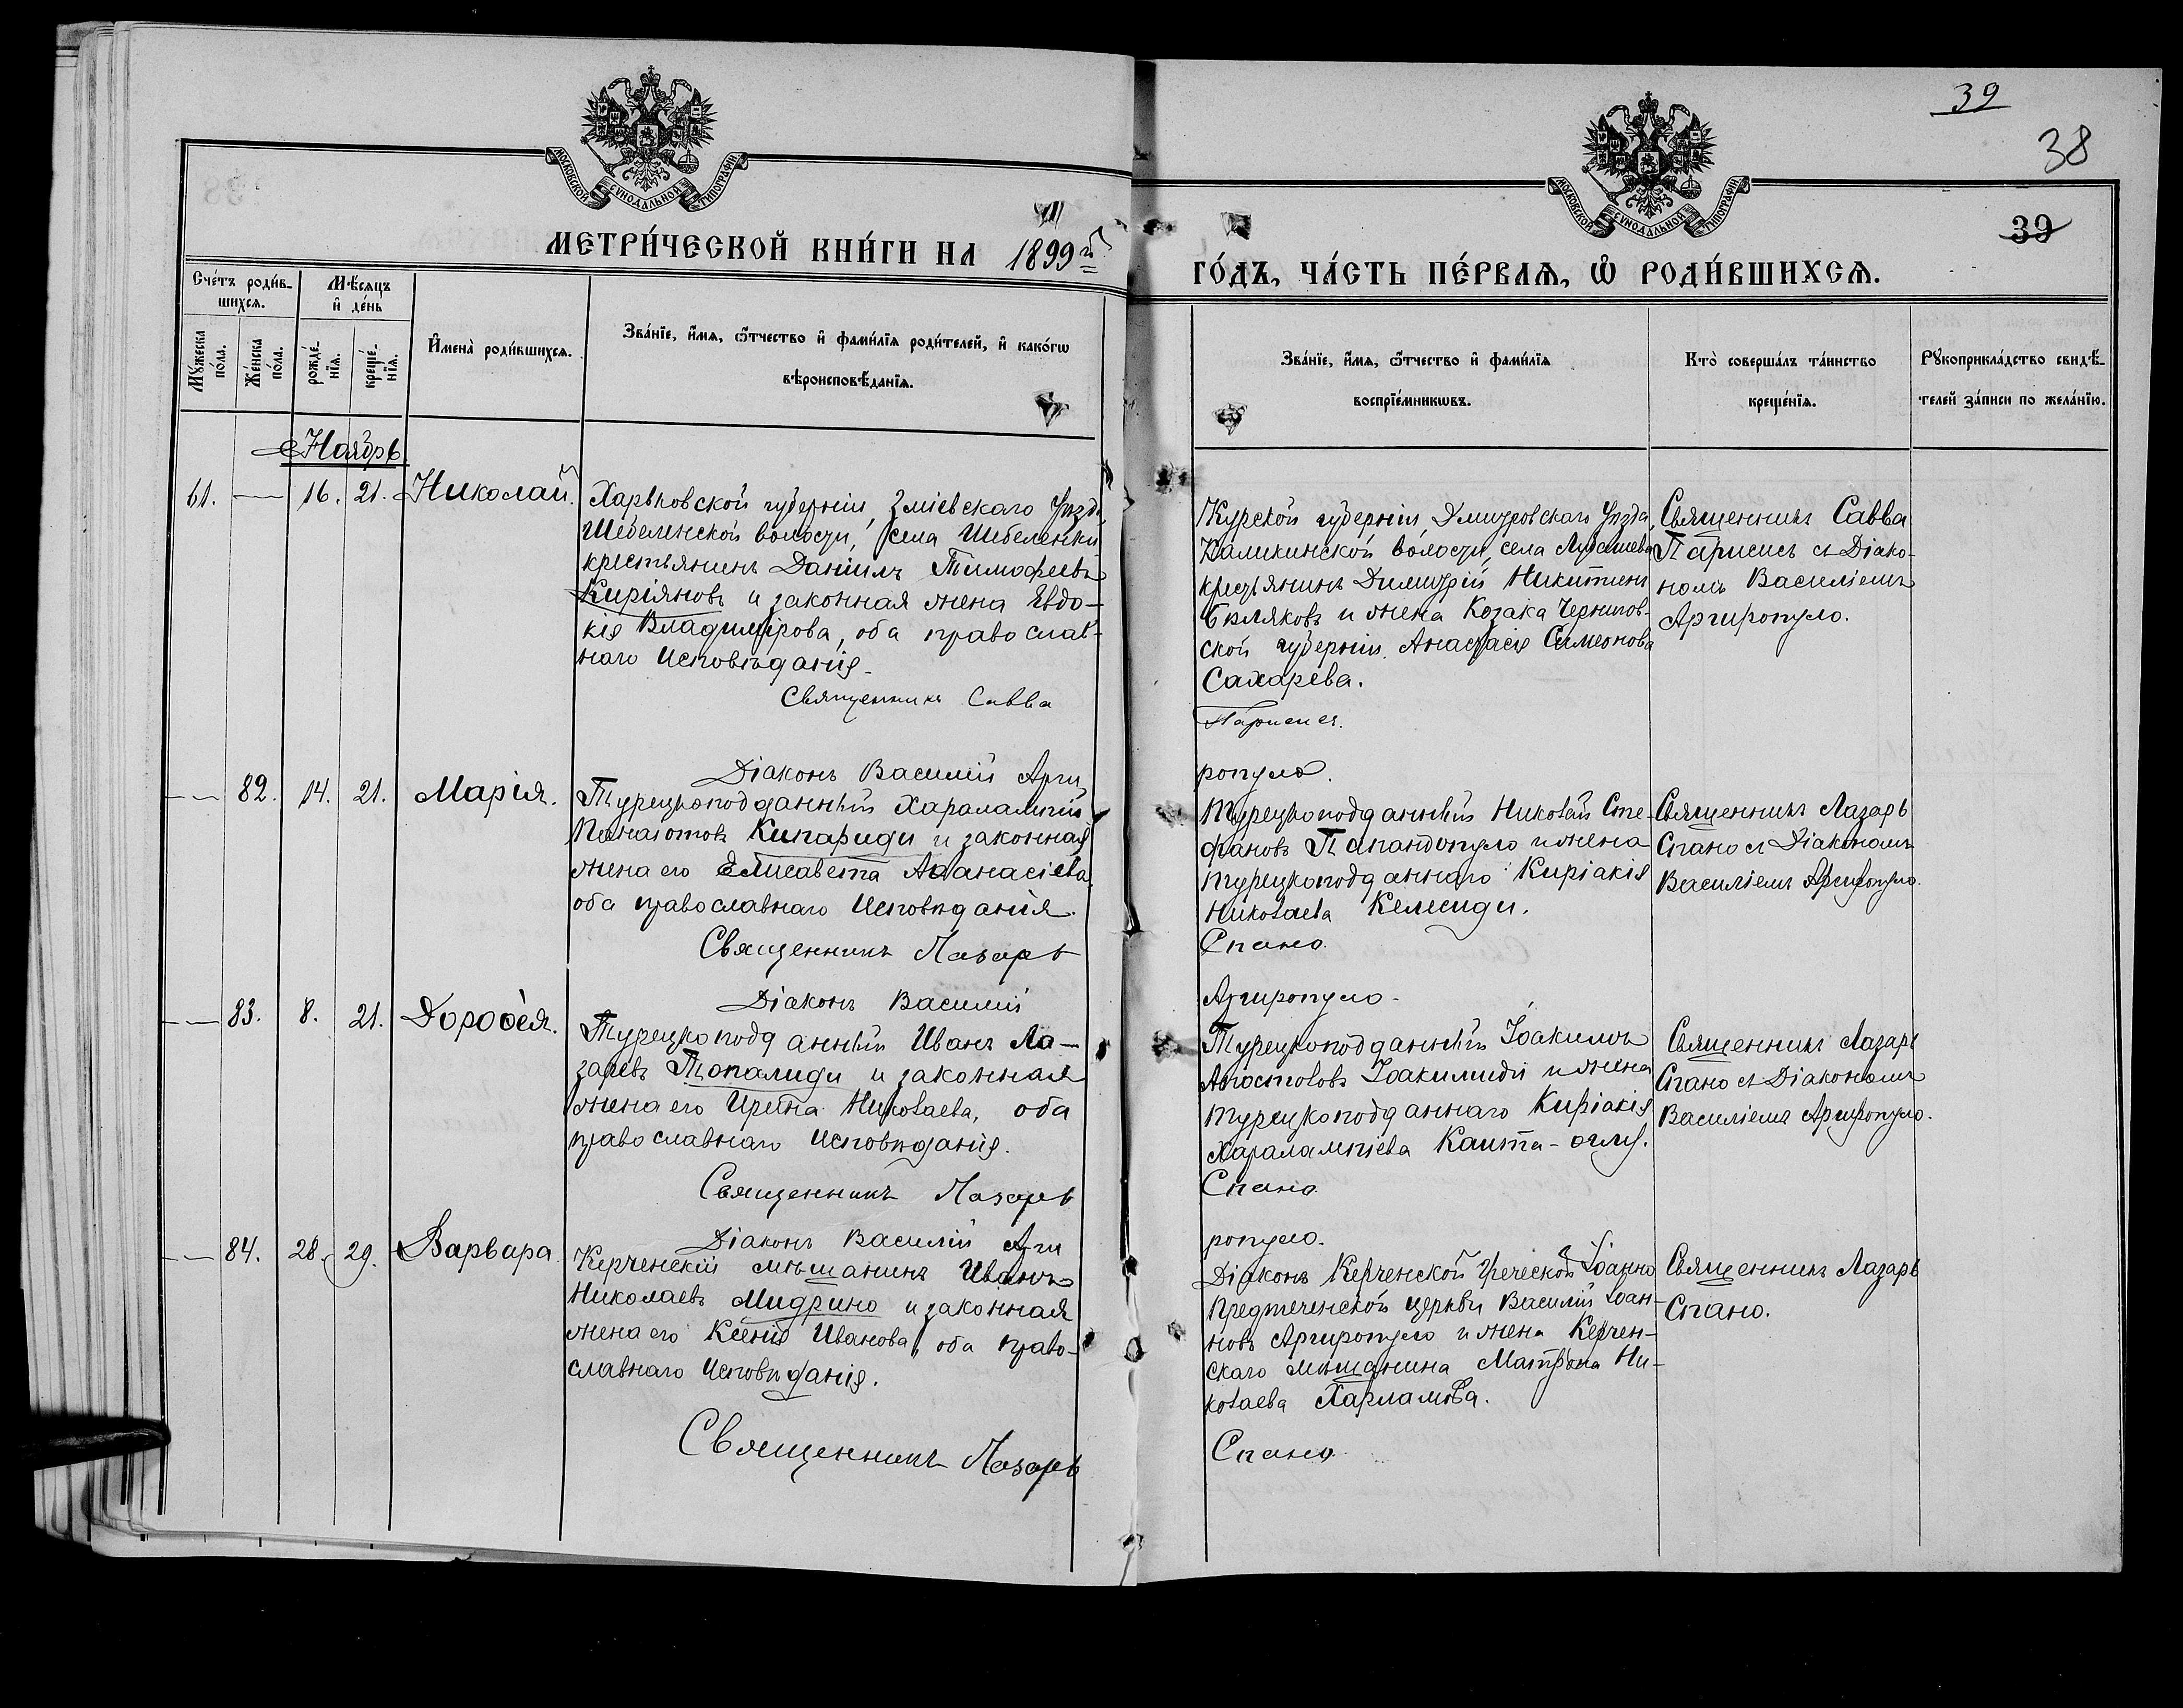 39
38
39
МОСКОВСКОЙ СУНОДАЛЬНОЙ ТИПОГРАФІИ
МОСКОВСКОЙ СУНОДАЛЬНОЙ ТИПОГРАФІИ
МЕТРИ́ЧЕСКОЙ КНИ́ГИ НА 1899й
ГО́ДЪ, ЧА́СТЬ ПЕ́РВАѦ, Ѡ҆ РОДИ́ВШИХСѦ.
Сче́тъ роди́в-
шихсѧ.
Мѣ́сѧцъ
и҆ де́нь
Мꙋ́жеска
по́ла.
Же́нска
по́ла.
рожде́-
нїѧ.
креще́-
нїѧ.
И҆мена̀ роди́вшихсѧ.
Зва́нїе, и҆́мѧ, ѻ҆́тчество и҆ фами́лїѧ роди́телей, и҆ како́гѡ
вѣроисповѣ́данїѧ.
Зва́нїе, и҆́мѧ, ѻ҆́тчество и҆ фами́лїѧ
воспрїе́мникѡвъ.
Кто̀ соверша́лъ та́инство
креще́нїѧ.
Рꙋкоприкла́дство свидѣ́-
телей за́писи по жела́нїю.
Ноябрь
61. — 16. 21. Николай.
Харьковской губерніи, Зміевскаго Уѣзда,
Шебеленской волости, села Шебеленки
крестьянинъ Даніилъ Тимофеевъ
Киріяновъ и законная жена Евдо-
кія Владимірова, оба православ-
наго Исповѣданія.
Священникъ Савва
Діаконъ Василій Арги
Курской губерніи, Дмитровскаго Уѣзда,
волости, села
крестьянинъ Димитрій Никитинъ
Бѣляковъ и жена Козака Чернигов-
ской губерніи. Анастасія Симеонова
Сахарева.
Парисисъ.
ропуло.
Священникъ Савва
Парисисъ съ Діако-
номъ Василіемъ
Аргиропуло.
— 82. 14. 21. Марія.
Турецкоподданный Харалампій
Панаіотовъ Кипариди и законная
жена его Елисавета Аѳанасіева,
оба православнаго Исповѣданія.
Священникъ Лазарь
Діаконъ Василій
Турецкоподданный Николай Сте-
фановъ Папандопуло и жена
турецкоподданнаго Киріакія
Николаева Келесиди.
Спано.
Аргиропуло.
Священникъ Лазарь
Спано съ Діакономъ
Василіемъ Аргиропуло.
— 83. 8. 21. Дороѳея.
Турецкоподданный Иванъ Ла-
заревъ Топалиди и законная
жена его Ирина Николаева, оба
православнаго Исповѣданія.
Священникъ Лазарь
Діаконъ Василій Арги
Турецкоподданный Іоакимъ
Апостоловъ Іоакимиди и жена
турецкоподданнаго Киріакія
Харалампіева Каита-оглу.
Спано
ропуло.
Священникъ Лазарь
Спано съ Діакономъ
Василіемъ Аргиропуло.
— 84. 28. 29. Варвара
Керченскій мѣщанинъ Иванъ
Николаевъ Мидрино и законная
жена его Ксенія Иванова, оба право-
славнаго Исповѣданія.
Священникъ Лазарь
Діаконъ Керченской Греческой Іоанно
Предтеченской церкви Василій Іоан-
новъ Аргиропуло и жена Керчен-
скаго мѣщанина Матрона Ни-
колаева Харламова.
Спано.
Священникъ Лазарь
Спано.